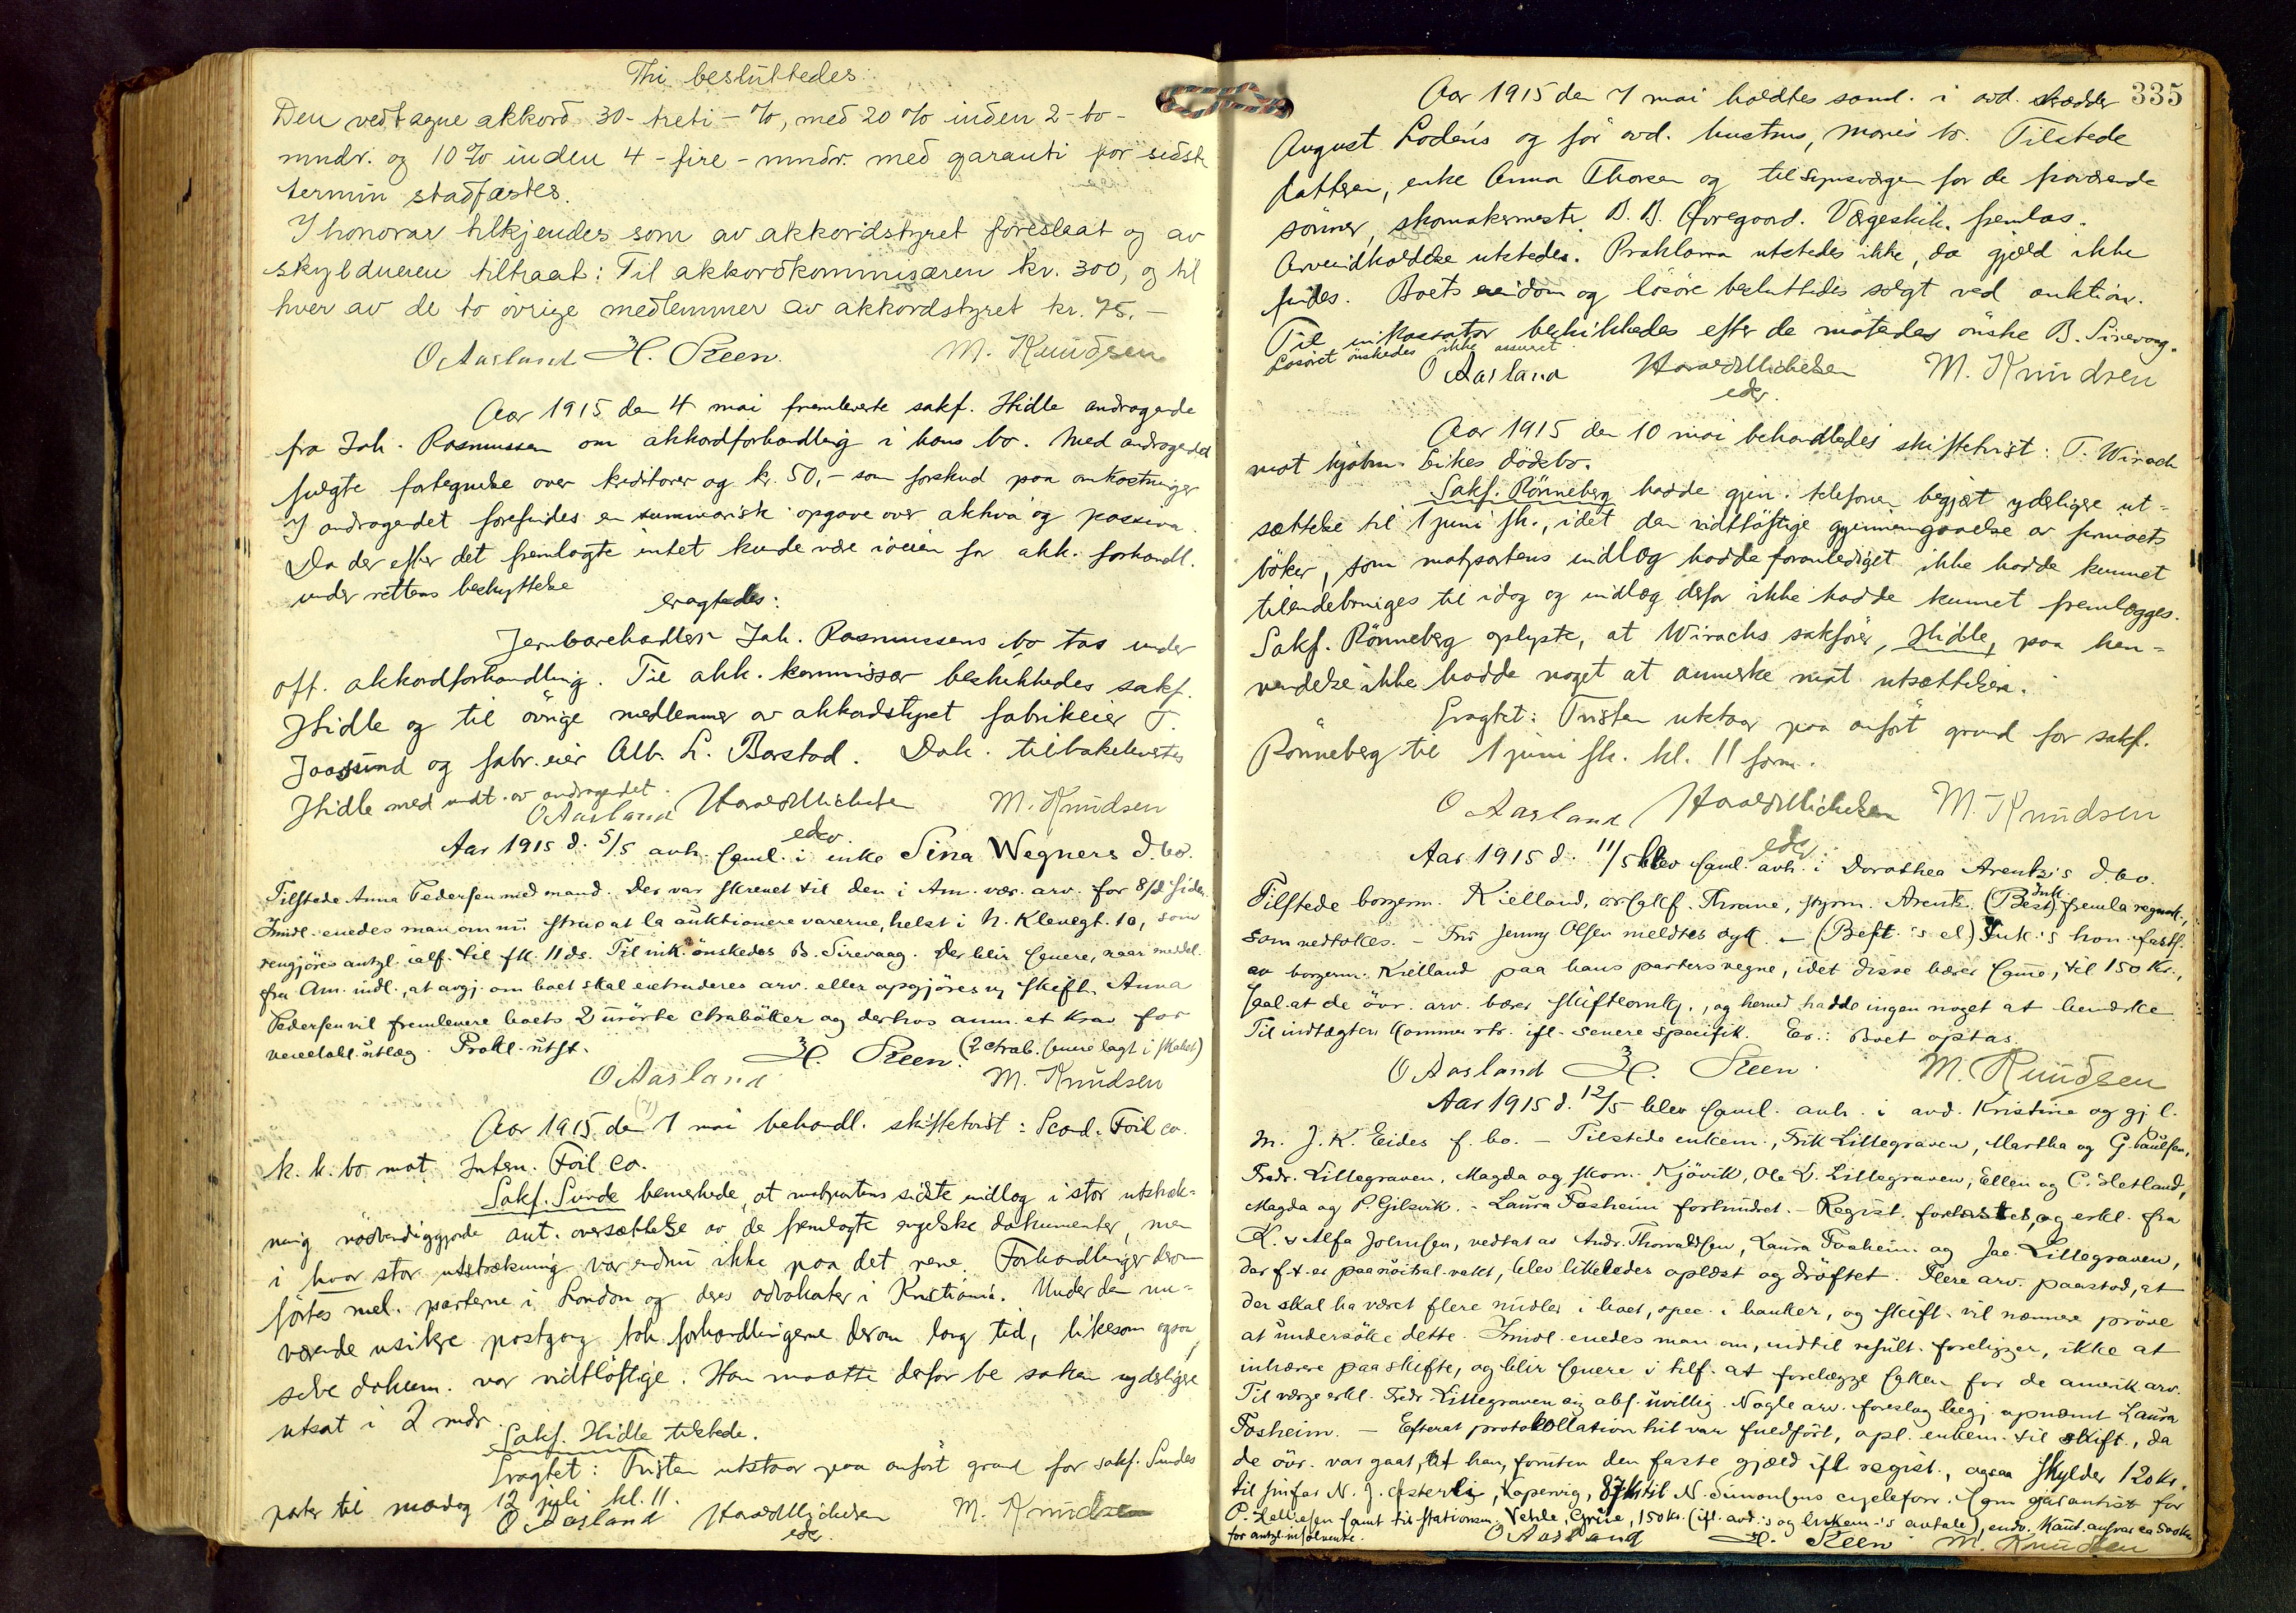 Thi besluttedes:
Den vedtagne akkord 30 - treti - %, med 20 % inden 2 - to -
mndr. og 10 % inden 4 - fire - mndr. med garanti for sidste
termin stadfæstes.
I honorar tilkjendes som av akkordstyret foreslaat og av
skyldneren tiltraat: Til akkordkommisæren kr. 300, og til
hver av de to övrige medlemmer av akkordstyret kr. 75.-
O Aasland H. Steen. M. Knudsen
Aar 1915 den 4 mai fremleverte sakf. Hidle andragende
fra Joh. Rasmussen om akkordforhandling i hans bo. Med andragendet
fulgte fortegnelse over kreditorer og kr. 50,- som forskud paa omkostninger
I andragendet forefindes en summarisk opgave over aktiva og passiva.
Da der efter det fremlagte intet kunde være iveien for akk. forhandl.
under rettens beskyttelse
eragtedes:
Jernvarehandler Joh. Rasmussens bo tas under
off. akkordforhandling. Til akk. kommissær beskikkedes sakf.
Hidle og til övrige medlemmer av akkordstyret fabrikeier T.
Joasund og fabr. eier Alb. L. Barstad. Dok. tilbakelevertes
Hidle med undt. av andragendet.
O Aasland Harald Michelsen M. Knudsen
edsv.
Aar 1915 d. 5/5 avh. saml. i enke Sina Wegners d.bo.
Tilstede Anna Pedersen med mand. Der var skrevet til den i Am. vær. arv. for 8/d siden.
Imidl. enedes man om nu straks at la auktionere varerne, helst i N. Klevegt. 10, som
rengjöres antgl. ialf. til fk. 11 ds. Til ink. önskedes B. Sirevaag. Der blir senere, naar meddel.
fra Am. indl., at avgj. om boet skal extraderes arv. eller opgjöres v/ skift. Anna
Pedersen vil fremlevere boets 2 urörte chrabötter og derhos anm. et krav for
utlæg. Prokl. utst.
H. Steen. (2 senere lagt i skabet)
O Aasland M. Knudsen
Aar 1915 den 7 mai behandl. skiftetvist: Scand. Foil co.
k. k. bo mot Intern. Foil Co.
Sakf. Sunde bemerkede, at motpartens sidste indlæg i stor utstræk-
ning nödvendiggjorde aut. oversættelse av de fremlagte engelske dokumenter, men
i hvor stor utstrækning var endnu ikke paa det rene. Forhandlinger derom
förtes mel. parterne i London og deres advokater i Kristiania. Under den nu-
værende usikre postgang tok forhandlingerne derom lang tid, likesom ogsaa
selve dokum. var vidtlöftige. Han maatte derfor be saken yderligere
utsat i 2 mdr.
Sakf. Hidle tilstede.
Eragtet: Tvisten utstaar paa anfört grund for sakf. Sundes
parter til mandag 12 juli kl. 11.
O Aasland Harald Michelsen M. Knudsen
edsv.
335
Aar 1915 den 7 mai holdtes saml. i avd. skrædder
August Lodens og för avd. hustrus, Maries bo. Tilstede
datteren, enke Anna Thorsen og tilsynsværgen for de fraværende
sönner, skomakermester B. B. Auregaard. Værgeskik. fremlas.
Arveindkaldelse utstedes. Proklama utstedes ikke, da gjæld ikke
findes. Boets eiendom og lösöre besluttedes solgt ved auktion.
Til inkassator beskikkedes efter de mötendes önske B. Sirevaag.
Lösöret önskedes ikke assurert.
O Aasland Harald Michelsen M. Knudsen
edsv.
Aar 1915 den 10 mai behandledes skiftetvist: T. Wirach
mot kjöbm. Eikes dödsbo.
Sakf. Rönneberg hadde gjen. telefonen begjært yderligere ut-
sættelse til 1 juni fk., idet den vidtlöftige gjennemgaaelse av firmaets
böker, som motpartens indlæg hadde foranlediget ikke hadde kunnet
tilendebringes til idag og indlæg derfor ikke hadde kunnet fremlægges.
Sakf. Rönneberg oplyste, at Wirachs sakförer, Hidle, paa hen-
vendelse ikke hadde noget at anmerke mot utsættelsen.
Eragtet: Tvisten utstaar paa anfört grund for sakf.
Rönneberg til 1 juni fk. kl. 11 form.
O Aasland Harald Michelsen M. Knudsen
edsv.
Aar 1915 d. 11/5 blev saml. avh. i Dorothea Arentz's d.bo.
Tilstede borgerm. Kielland, orsakf. Thrane, styrm. Arentz. (Best) Ink. fremla regnsk.,
som vedtokes. - Frü Jenny Olsen meldtes syk. - (Best.'s el.) Ink.'s hon. fastf.
av borgerm. Kielland paa hans parters vegne, idet disse bærer samme, til 150 kr.,
saal. at de övr. arv. bærer skifteomk., og herved hadde ingen noget at bemerke
Til indtægten kommer rtr. ifl. senere specifik. Er.: Boet optas.
O Aasland H. Steen. M. Knudsen
Aar 1915 d. 12/5 blev saml. avh. i avd. Kristine og gj.l.
m. J. K. Eides f. bo. - Tilstede enkem., Erik Lillegraven, Martha og G. Paulsen,
Fredr. Lillegraven, Magda og skom. Kjövik, Ole V. Lillegraven, Ellen og C. Hetland,
Magda og P. Gilsvik. - Laura Fosheim forhindret. - Regist. forelæstes, og erkl. fra
K. & Alfa Johnsen, vedtat av Andr. Thorvaldsen, Laura Fosheim og Jac. Lillegraven,
der f.t. er paa nöitral.vakt, blev likeledes oplæst og dröftet. Flere arv. paastod, at
der skal ha været flere midler i boet, spec. i banker, og skift. vil nærmere pröve
at undersöke dette. Imidl. enedes man om, indtil result. foreligger, ikke at
inhærere paa skifte, og blir senere i tilf. at forelægge saken for de amerik. arv.
Til værge erkl. Fredr. Lillegraven sig abs. uvillig. Nogle arv. foreslog begj. opnævnt Laura
Fosheim. - Efterat protokollation hit var fuldfört, opl. enkem. til skift., da
de övr. var gaat, at han, foruten den faste gjæld ifl. regist., ogsaa skylder 120 kr.
til N. J. Østerli, Kopervig, 87 kr til N. Simonsens cycleforr. som garantist for
P. samt til stationsm. Vetrle, Grüe, 150 kr. (ifl. avd.'s og enkem.'s avtale), endv. kaut.ansvar ca 500 kr
for antgl. insolvente.
O Aasland H. Steen M. Knudsen